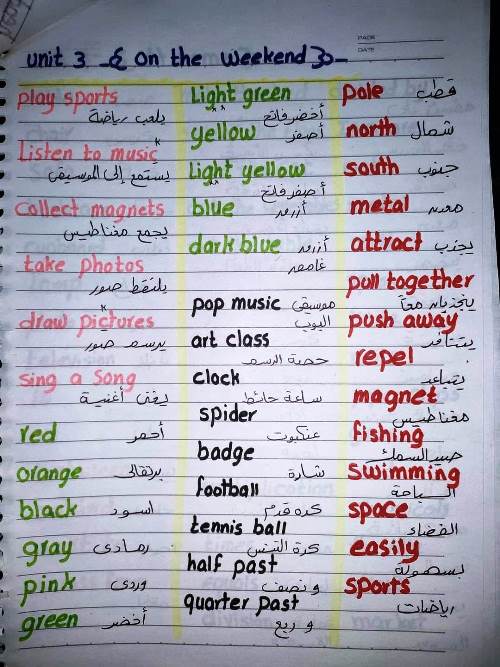 PAGE
DATE
unit 3 { on the weekend }
play sports
يلعب رياضة
Listen to music
يستمع إلى الموسيقى
collect magnets
يجمع مغناطيس
take photos
يلتقط صور
draw pictures
يرسم صور
sing a song
يغنى أغنية
red أحمر
orange برتقالى
black اسود
gray رمادى
pink وردى
green أخضر
Light green
أخضر فاتح
yellow أصفر
Light yellow
أصفر فاتح
blue أزرق
dark blue أزرق
غامق
pop music موسيقى
البوب
art class
حصة الرسم
clock
ساعة حائط
spider
عنكبوت
badge
شارة
football
كرة قدم
tennis ball
كرة التنس
half past
و نصف
quarter past
و ربع
pole قطب
north شمال
south جنوب
metal معدن
attract يجذب
pull together
ينجذبان معاً
push away
يتنافر
repel
يتباعد
magnet
مغناطيس
fishing
صيد السمك
Swimming
السباحة
space
الفضاء
easily
بسهولة
sports
رياضات